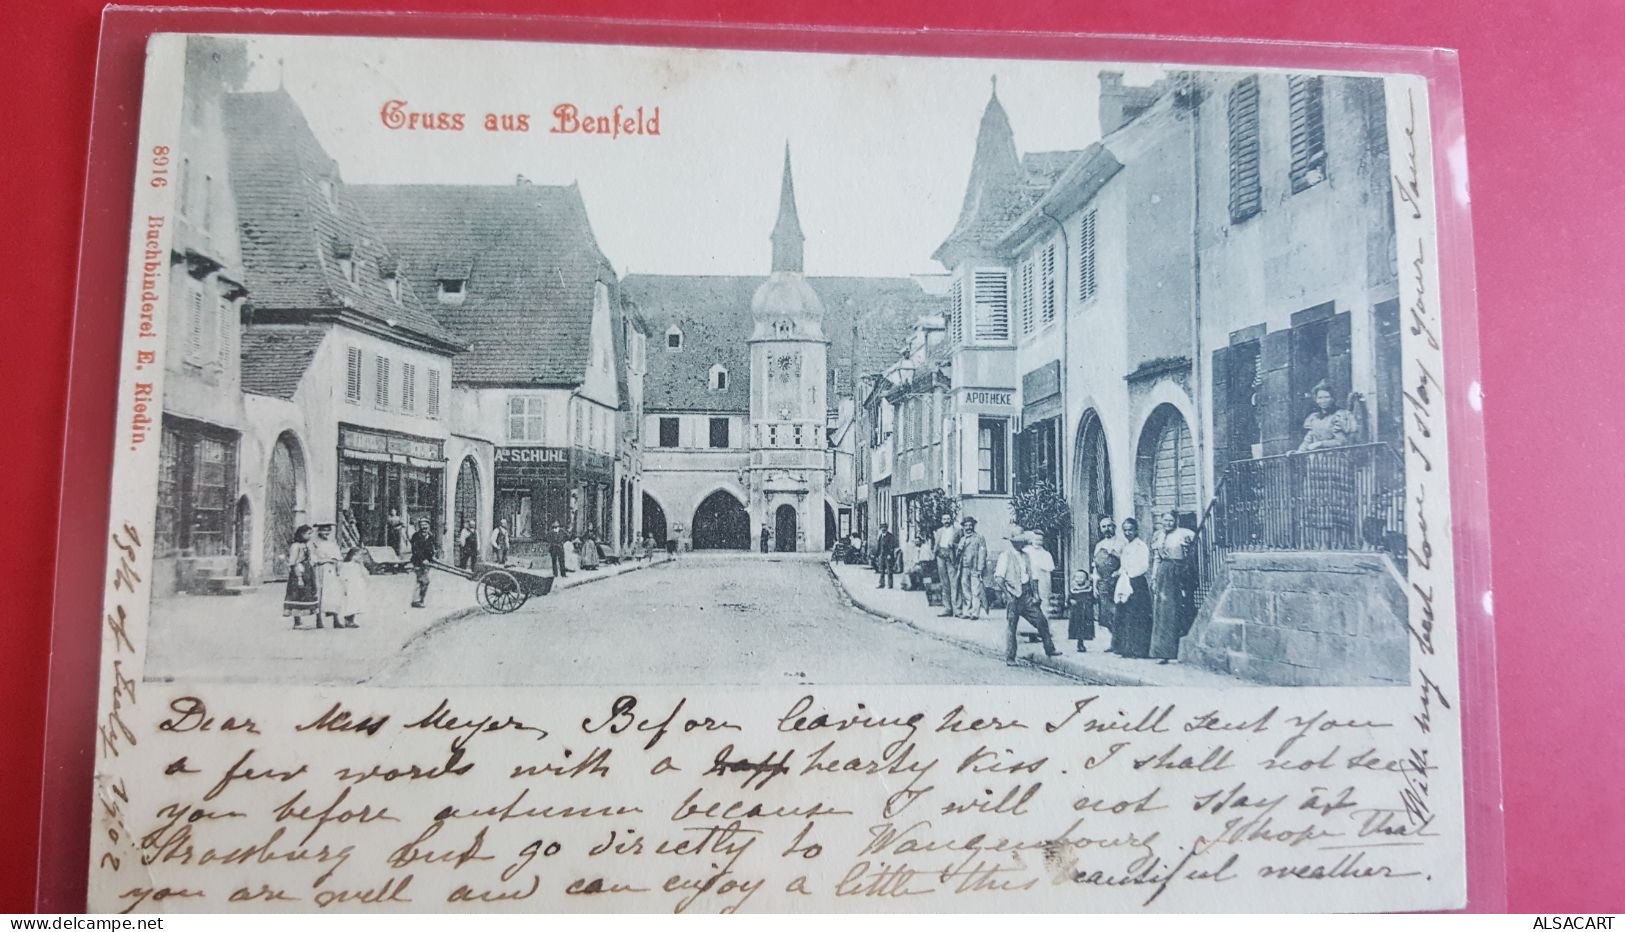 Gruss aus Benfeld
8916 Buchbinderei E. Riedin.
SCHUHL
APOTHEKE
25th of July 1902
Dear Miss Meyer, Before leaving here I will sent you
a few words with a hearty kiss. I shall not see
you before autumn because I will not stay at
Strassburg but go directly to Wangenbourg. I hope that
you are well and can enjoy a little this beautiful weather.
With my best love I stay your Jane
ALSACART